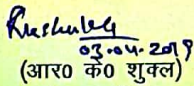 RKShukla
03.04.2019
(आर0 के0 शुक्ल)